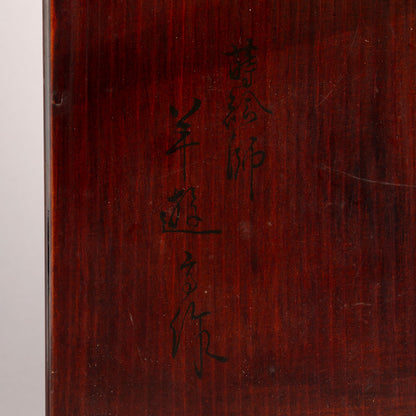 蒔絵師
羊遊斎作